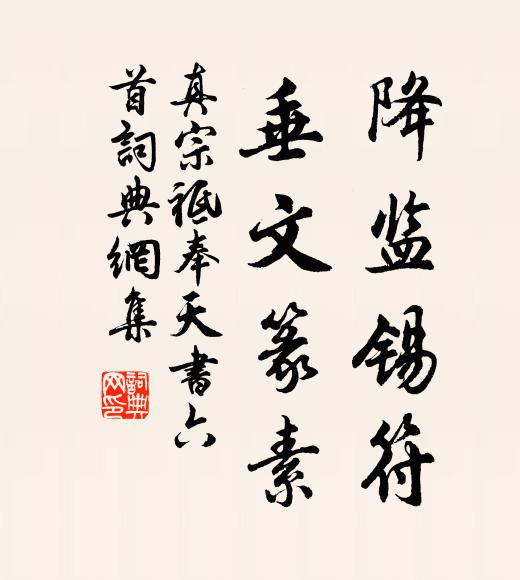 降监锡符
垂文篆素
真宗祗奉天书六
首詞典網集
詞典
网印